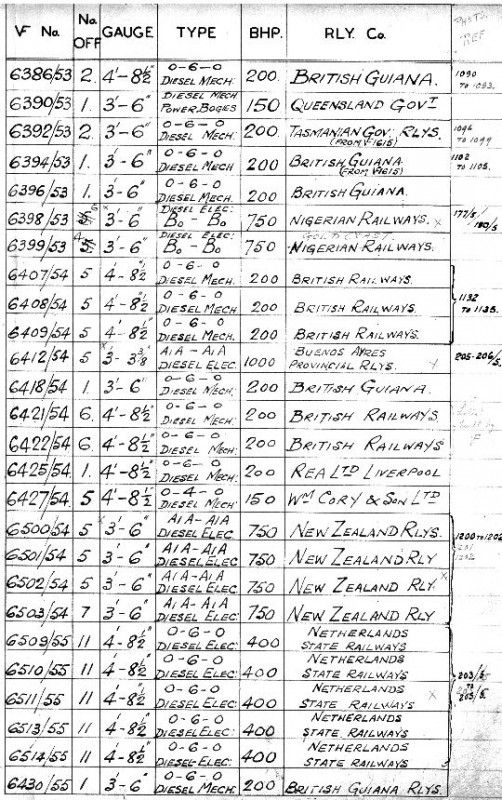 VF No. No. OFF GAUGE TYPE BHP. RLY. Co. PHOTO. REF
6386/53 2. 4'-8½" 0-6-0 DIESEL MECH. 200. BRITISH GUIANA. 1090 TO 1093.
6390/53 1. 3'-6" DIESEL MECH POWER BOGIES 150 QUEENSLAND GOVT
6392/53 2. 3'-6" 0-6-0 DIESEL MECH. 200. TASMANIAN GOV. RLYS. (FROM VF1615) 1096 TO 1099
6394/53 1. 3'-6" 0-6-0 DIESEL MECH 200 BRITISH GUIANA (FROM VF1615) 1102 TO 1105.
6396/53 1. 3'-6" 0-6-0 DIESEL MECH. 200 BRITISH GUIANA.
6398/53 6 3'-6" DIESEL ELEC. Bo - Bo 750 NIGERIAN RAILWAYS. x 177/5./180/5
6399/53 4 3'-6" DIESEL ELEC. Bo - Bo 750 GOLD COAST NIGERIAN RAILWAYS.
6407/54 5 4'-8½" 0-6-0 DIESEL MECH. 200 BRITISH RAILWAYS.
6408/54 5 4'-8½" 0-6-0 DIESEL MECH. 200 BRITISH RAILWAYS. 1132 TO 1135.
6409/54 5 4'-8½" 0-6-0 DIESEL MECH. 200 BRITISH RAILWAYS.
6412/54 5 x 3'-3⅜" A1A-A1A DIESEL ELEC. 1000 BUENOS AYRES PROVINCIAL RLYS. 205-206/5.
6418/54 1. 3'-6" 0-6-0 DIESEL MECH. 200 BRITISH GUIANA.
6421/54 6. 4'-8½" 0-6-0 DIESEL MECH. 200 BRITISH RAILWAYS
6422/54 6. 4'-8½" 0-6-0 DIESEL MECH. 200 BRITISH RAILWAYS
6425/54 1. 4'-8½" 0-6-0 DIESEL MECH. 200 REA LTD LIVERPOOL
6427/54 5 4'-8½" 0-4-0 DIESEL MECH. 150 WM CORY & SON LTD
6500/54 5 x 3'-6" A1A-A1A DIESEL ELEC. 750 NEW ZEALAND RLYS. 1200 TO 1202
6501/54 5 3'-6" A1A-A1A DIESEL ELEC 750 NEW ZEALAND RLY
6502/54 5 3'-6" A1A-A1A DIESEL ELEC. 750 NEW ZEALAND RLY x
6503/54 7 3'-6" A1A-A1A DIESEL ELEC. 750 NEW ZEALAND RLY
6509/55 11 4'-8½" 0-6-0 DIESEL ELEC: 400 NETHERLANDS STATE RAILWAYS
6510/55 11 4'-8½" 0-6-0 DIESEL ELEC: 400 NETHERLANDS STATE RAILWAYS 203/5.
6511/55 11 4'-8½" 0-6-0 DIESEL ELEC. 400 NETHERLANDS STATE RAILWAYS x TO 205/5.
6513/55 11 4'-8½" 0-6-0 DIESEL ELEC. 400 NETHERLANDS STATE RAILWAYS
6514/55 11 4'-8½" 0-6-0 DIESEL ELEC: 400 NETHERLANDS STATE RAILWAYS
6430/55 1. 3'-6" 0-6-0 DIESEL MECH. 200 BRITISH GUIANA RLYS.